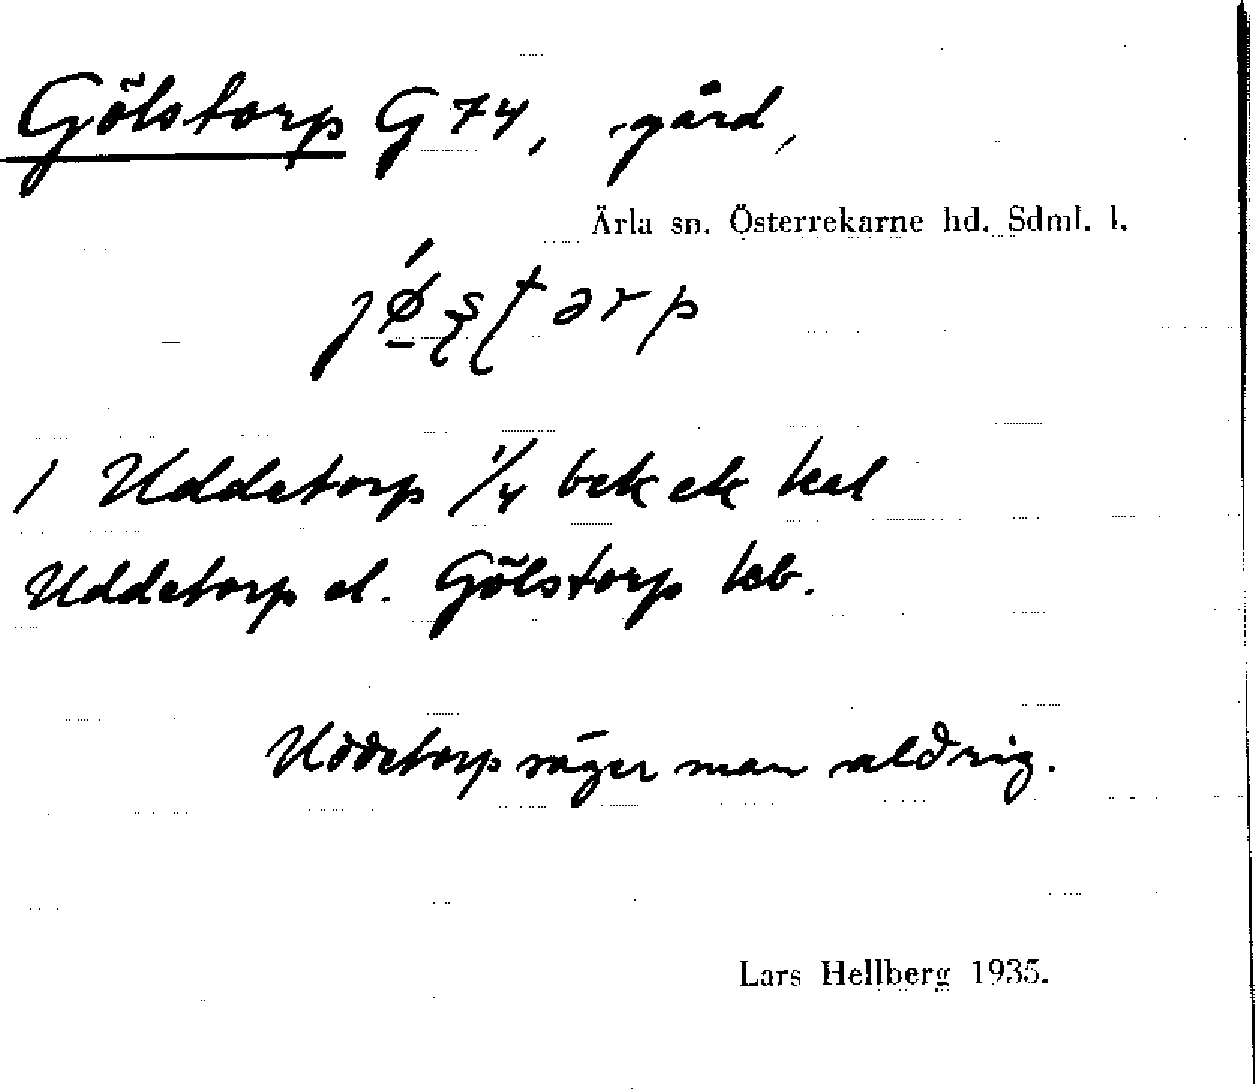 Gölstorp G 74, gård,
Ärla sn. Österrekarne hd. Sdml. l.
1 Uddetorp 1/4 bek ek kal
Uddetorp el. Gölstorp keb.
Uddetorp säger man aldrig.
Lars Hellberg 1935.